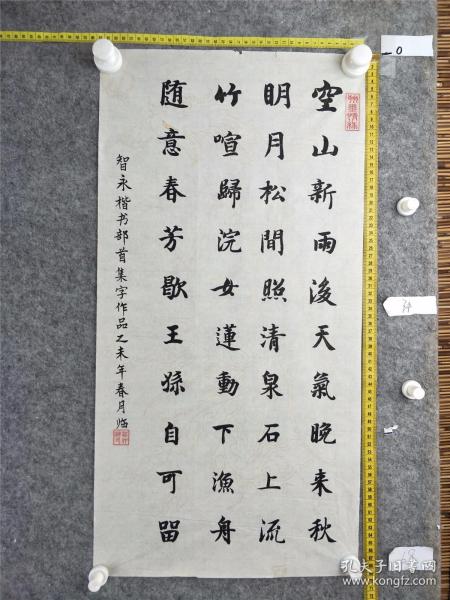 空山新雨後天氣晚来秋
明月松間照清泉石上流
竹喧歸浣女蓮動下漁舟
随意春芳歇王孫自可留
智永楷书部首集字作品乙未年春月临
0
孔夫子旧书网
www.kongfz.com